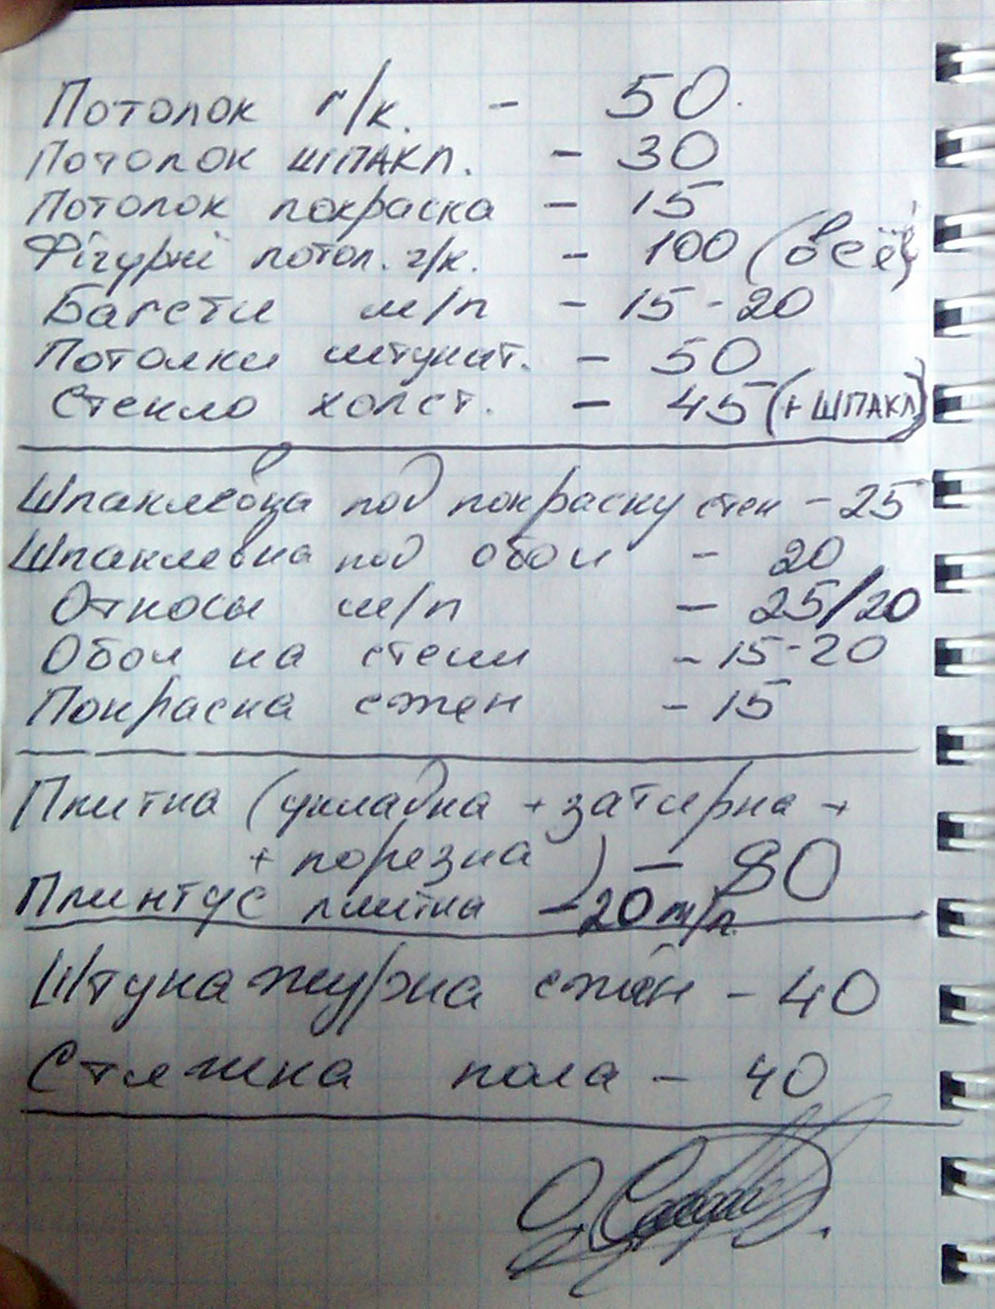 Потолок г/к. - 50.
Потолок шпакл. - 30
Потолок покраска - 15
Фігурні потол. г/к. - 100 (всё)
Багети м/п - 15-20
Потолки штукат. - 50
Стекло холст. - 45 (+ ШПАКЛ)
Шпаклевка под покраску стен - 25
Шпаклевка под обои - 20
Откосы м/п - 25/20
Обои на стены - 15-20
Покраска стен - 15
Плитка (укладка + затирка +
+ порезка) - 80
Плинтус плитка - 20 м/п
Штукатурка стен - 40
Стяжка пола - 40